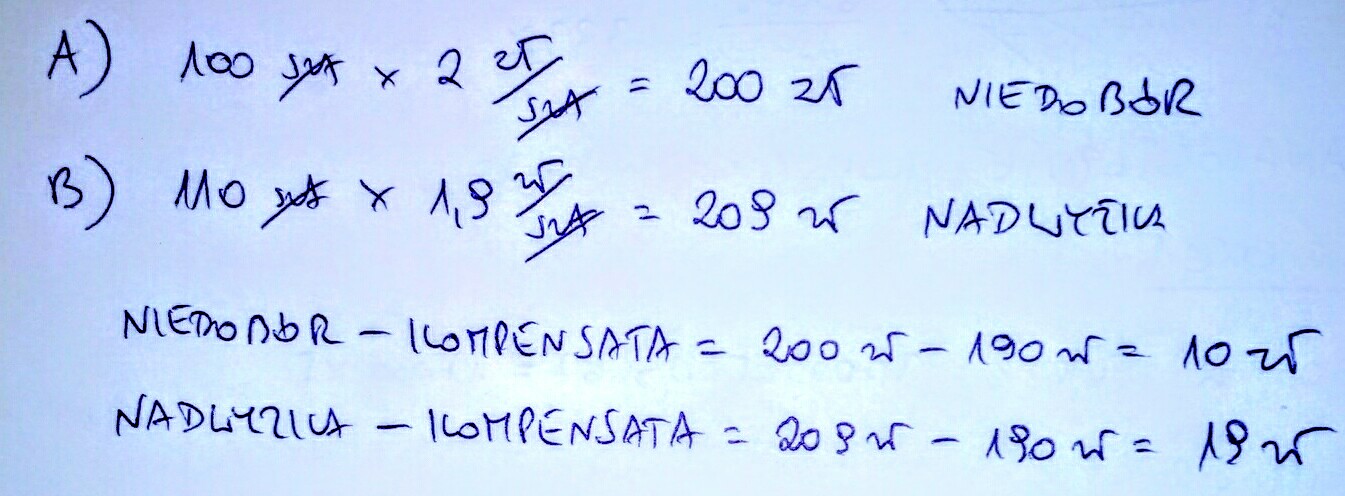 A) 100 szt x 2 zł/szt = 200 zł NIEDOBÓR
B) 110 szt x 1,9 zł/szt = 209 zł NADWYŻKA
NIEDOBÓR – KOMPENSATA = 200 zł – 190 zł = 10 zł
NADWYŻKA – KOMPENSATA = 209 zł – 190 zł = 19 zł